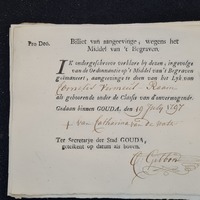 Pro Deo.
Billet van aangeevinge, wegens het
Middel van 't Begraven.
IK ondergeschreven verklaare by deezen, ingevolge
van de Ordonnantie op 't Middel van 't Begraven
geëmaneert, aangeevinge te doen van het Lyk van
Cornelis
als gehoorende onder de Classis van d'onvermogende.
Gedaan binnen GOUDA, den 19 July 1797
van Catharina van de
Ter Secretarye der Stad GOUDA,
geteekent op datum als boven.